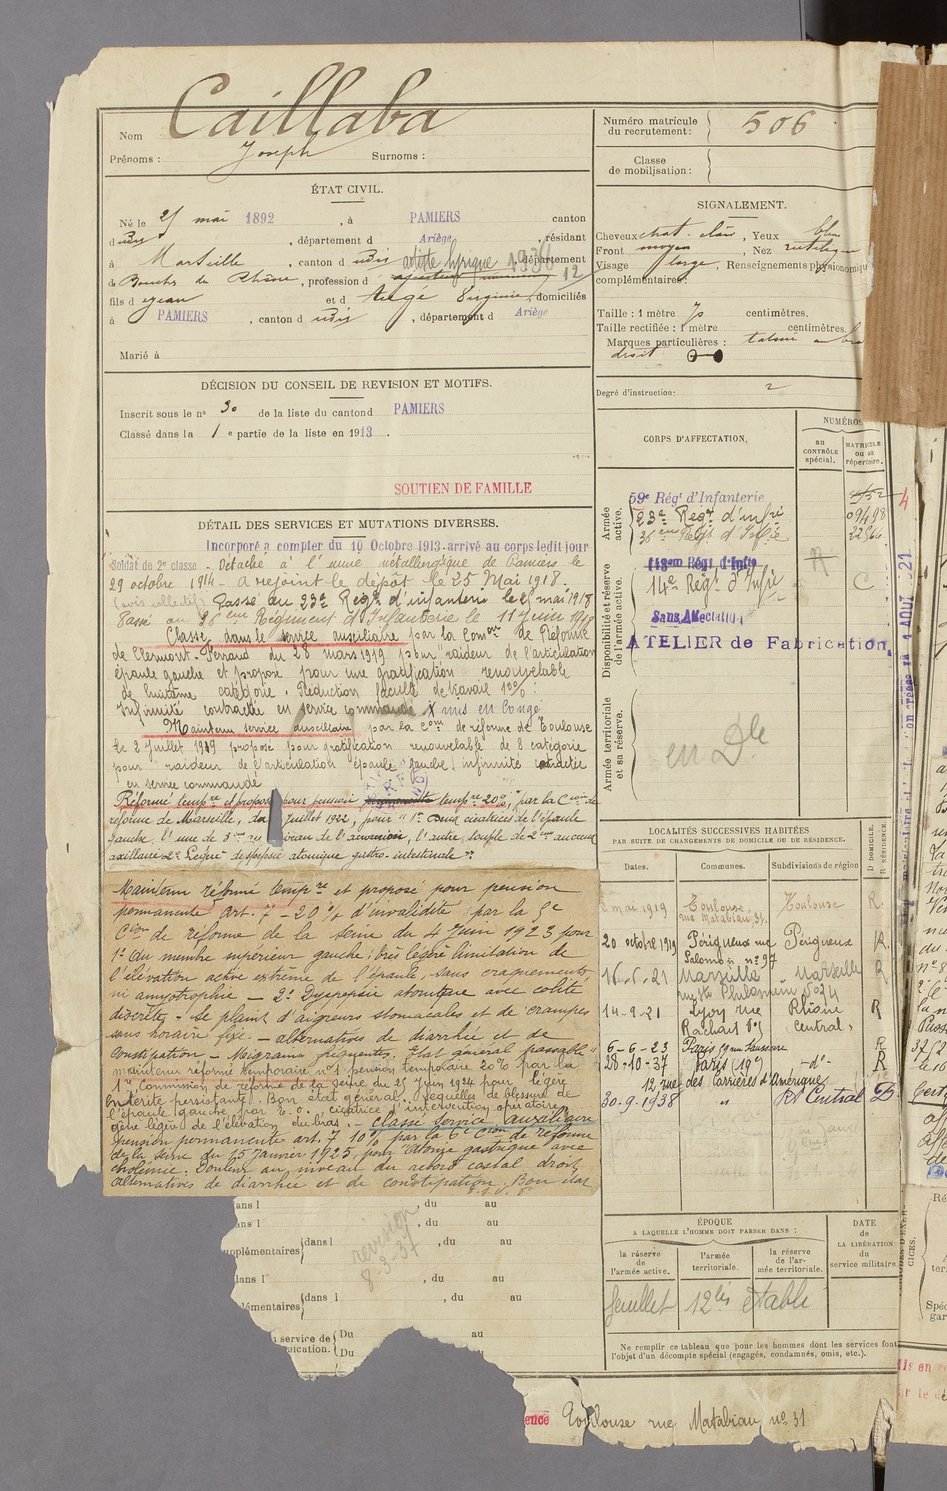 Caillaba
Nom
Joseph
Prénoms : Surnoms :
Numéro matricule du recrutement : 506
Classe de mobilisation :
ÉTAT CIVIL.
Né le 25 mai 1892, à PAMIERS canton
dudit, département d Ariège, résidant
à Marseille, canton dudit département
artiste lyrique 1936
du Bouches du Rhône, profession d
12
fils d Jean et d domiciliés
à PAMIERS, canton dudit, département d Ariège
Marié à
SIGNALEMENT.
Cheveux chat. clair, Yeux bleu
Front moyen, Nez rectiligne
Visage large, Renseignements physionomiqu
complémentaires :
Taille : 1 mètre 70 centimètres.
Taille rectifiée : 1 mètre centimètres.
Marques particulières : tatoué au bra
droit
Degré d'instruction : 2
DÉCISION DU CONSEIL DE REVISION ET MOTIFS.
Inscrit sous le n° 30 de la liste du canton d PAMIERS
Classé dans la 1e partie de la liste en 1913.
SOUTIEN DE FAMILLE
DÉTAIL DES SERVICES ET MUTATIONS DIVERSES.
Incorporé à compter du 10 Octobre 1913 arrivé au corps ledit jour
Soldat de 2e classe - Détaché à l'usine métallurgique de Pamiers le
29 octobre 1914 - a rejoint le dépôt le 25 Mai 1918.
(avis collectif) Passé au 23e Régt d'infanterie le 25 mai 1918
Passé au 36ème Régiment d'Infanterie le 11 Juin 1918
Classé dans le service auxiliaire par la Comon de Réforme
de Clermont-Ferrand du 28 mars 1919 pour "raideur de l'articulation
épaule gauche et proposé pour une gratification renouvelable
de huitième catégorie. Réduction faculté de travail 10%.
Infirmité contractée en service commandé X mis en congé
Maintenu service auxiliaire par la Com de réforme de Toulouse
le 2 Juillet 1919 proposé pour gratification renouvelable de 8 catégorie
pour raideur de l'articulation épaule gauche infirmité contractée
en service commandé
Réformé tempre et proposé pour pension permanente tempre 20% par la Cion de
réforme de Marseille, du Juillet 1922, pour "1° cicatrices de l'épaule
gauche, l'une de de l'acromion, l'autre, souple de 2cm au creux
axillaire 2° Légère dyspepsie atonique gastro-intestinale".
Maintenu réformé tempre et proposé pour pension
permanente art. 7 - 20% d'invalidité par la 5e
Cion de réforme de la Seine du 4 Juin 1923 pour
1° du membre supérieur gauche : très légère limitation de
l'élévation active extrême de l'épaule, sans craquements
ni amyotrophie - 2° Dyspepsie atonique avec colite
discrète - se plaint d'aigreurs stomacales et de crampes
sans horaire fixe. - alternatives de diarrhée et de
constipation - Migraines fréquentes. Etat général passable"
maintenu réformé temporaire n°1 pension temporaire 20% par la
1re Commission de réforme de la Seine du 25 Juin 1924 pour légère
entérite persistante. Bon état général. Séquelles de blessure de
l'épaule gauche par E.O. cicatrice d'intervention opératoire
gêne légère de l'élévation du bras. - classé service auxiliaire
pension permanente art. 7 10% par la 6e Cion de réforme
de la Seine du 15 Janvier 1925, pour "atonie gastrique avec
cholémie. Douleur au niveau du rebord costal droit
alternatives de diarrhée et de constipation. Bon état
CORPS D'AFFECTATION.
NUMÉROS
au CONTRÔLE spécial.
MATRICULE ou au répertoire.
Armée active.
59e Régt d'Infanterie
23e Régt d'infie 09498
36ème Régt d'Infie 22564
Disponibilité et réserve de l'armée active.
118em Régt d'Infie
14e Régt d'Infie
R
C
Sans Affectation
ATELIER de Fabrication
Armée territoriale et sa réserve.
en Dle
LOCALITÉS SUCCESSIVES HABITÉES
PAR SUITE DE CHANGEMENTS DE DOMICILE OU DE RÉSIDENCE.
D DOMICILE.
R RÉSIDENCE.
Dates. Communes. Subdivisions de région
2 mai 1919 Toulouse rue Matabiau 31. Toulouse R.
20 octobre 1919 Périgueux rue Salomon n° 97 Périgueux R.
16.6.21 Marseille rue Ste Philomène n°24 Marseille R
14-9-21 Lyon rue Rachais Rhône central, R
6-6-23 Paris 19 rue Lesseure R
28-10-37 Paris (19e) -d°- R
12 rue des Carrières d'Amérique
30-9-1938 " Rt Central D
ans l , du au
ans l , du au
supplémentaires dans l , du au
dans l' , du au
plémentaires dans l , du au
service de Du au
Du
revision
8-3-37
ÉPOQUE
A LAQUELLE L'HOMME DOIT PASSER DANS :
la réserve de l'armée active.
l'armée territoriale.
la réserve de l'armée territoriale.
DATE de LA LIBÉRATION du service militaire.
feuillet 12 bis établi
Ne remplir ce tableau que pour les hommes dont les services font
l'objet d'un décompte spécial (engagés, condamnés, omis, etc.).
ence Toulouse rue Matabiau, n° 31